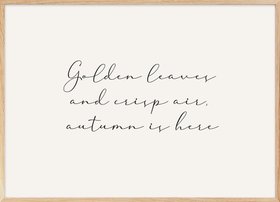 Golden leaves
and crisp air,
autumn is here